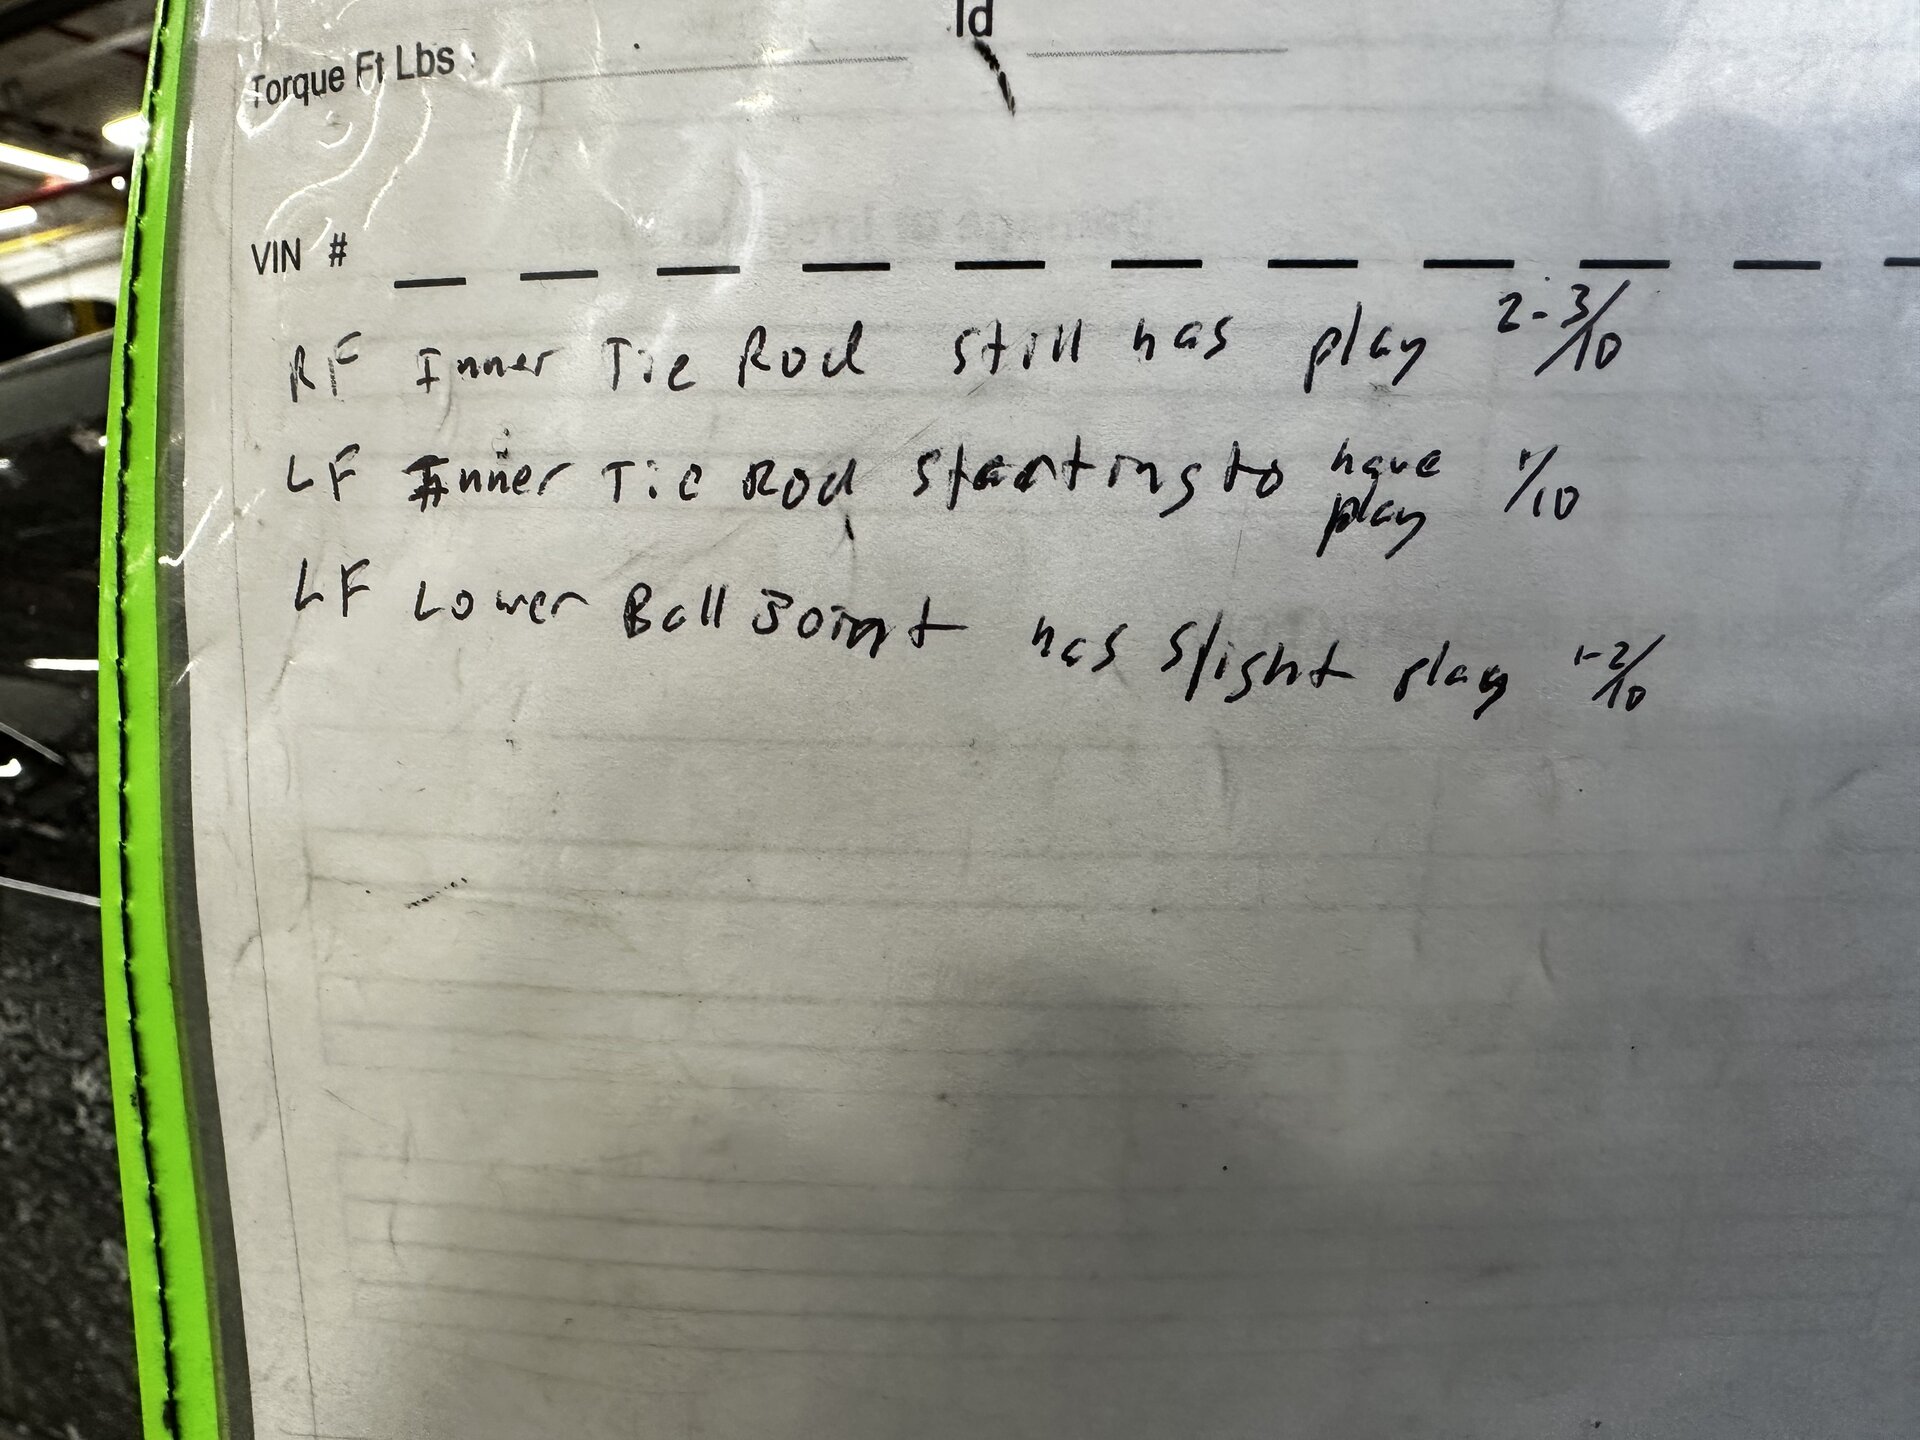 Id
Torque Ft Lbs :
VIN #
RF Inner Tie Rod still has play 2-3/10
LF Inner Tie Rod starting to have play 1/10
LF Lower Ball Joint has slight play 1-2/10